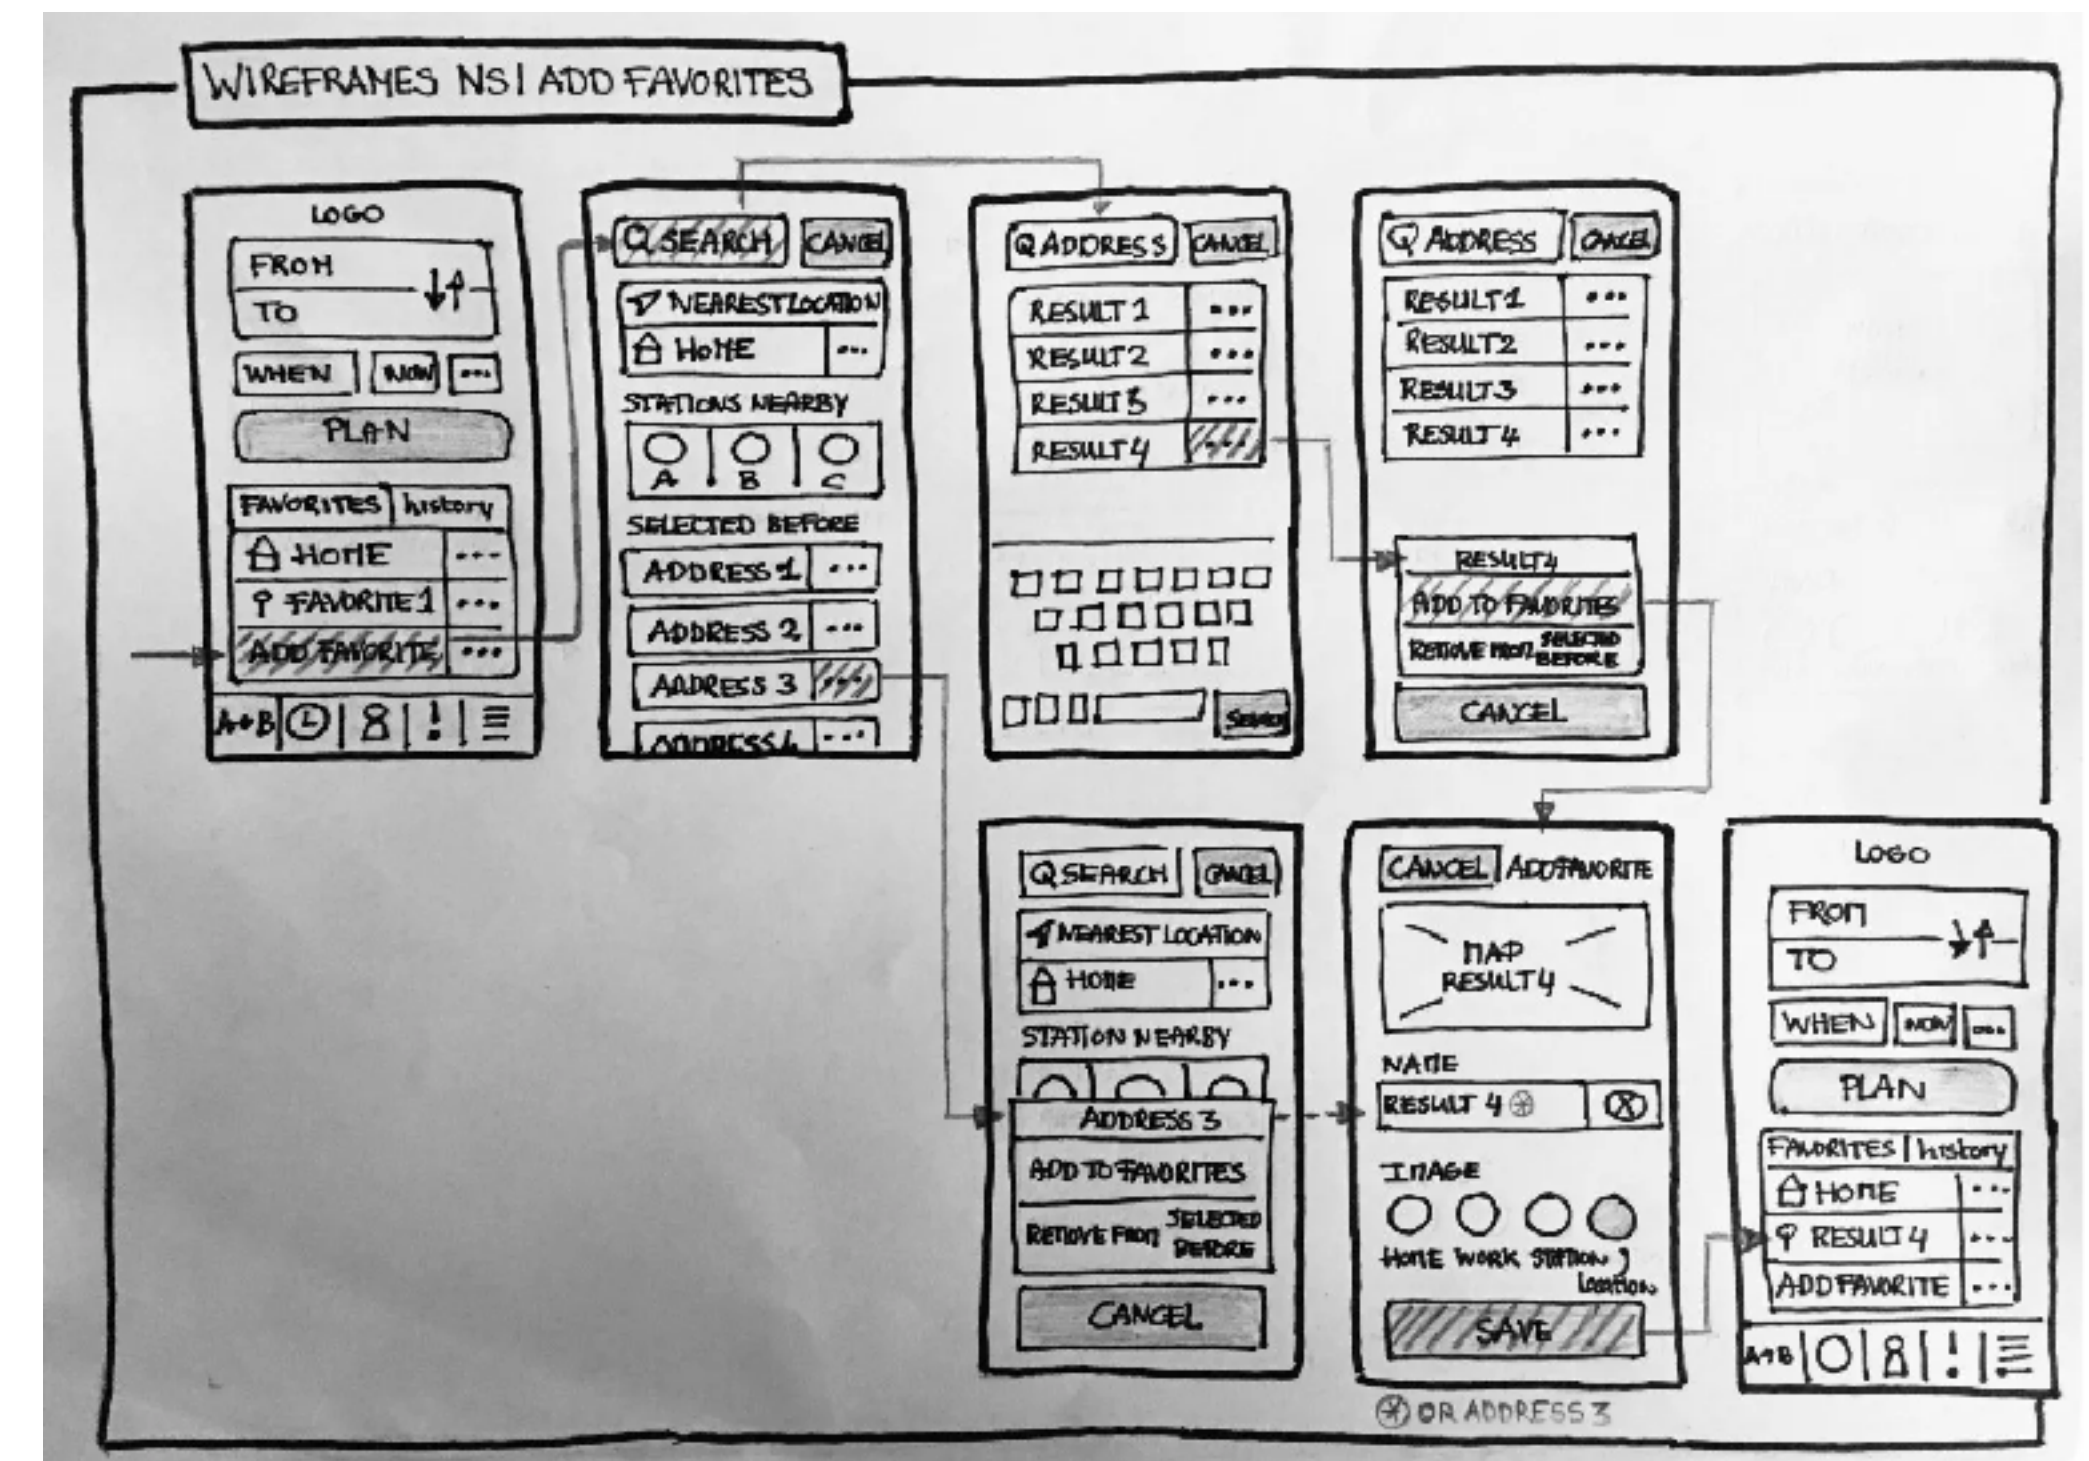 WIREFRAMES NS | ADD FAVORITES
LOGO
FROM
TO
WHEN NOW ...
PLAN
FAVORITES history
HOME ...
FAVORITE 1 ...
ADD FAVORITE ...
A→B
SEARCH CANCEL
NEAREST LOCATION
HOME ...
STATIONS NEARBY
A B C
SELECTED BEFORE
ADDRESS 1 ...
ADDRESS 2 ...
ADDRESS 3 ...
ADDRESS 4 ...
ADDRESS CANCEL
RESULT 1 ...
RESULT 2 ...
RESULT 3 ...
RESULT 4 ...
SEARCH
ADDRESS CANCEL
RESULT 1 ...
RESULT 2 ...
RESULT 3 ...
RESULT 4 ...
RESULT 4
ADD TO FAVORITES
REMOVE FROM SELECTED BEFORE
CANCEL
SEARCH CANCEL
NEAREST LOCATION
HOME ...
STATION NEARBY
ADDRESS 3
ADD TO FAVORITES
REMOVE FROM SELECTED BEFORE
CANCEL
CANCEL ADD FAVORITE
MAP
RESULT 4
NAME
RESULT 4 * X
IMAGE
HOME WORK STATION location
SAVE
* OR ADDRESS 3
LOGO
FROM
TO
WHEN NOW ...
PLAN
FAVORITES | history
HOME ...
RESULT 4 ...
ADD FAVORITE ...
A→B